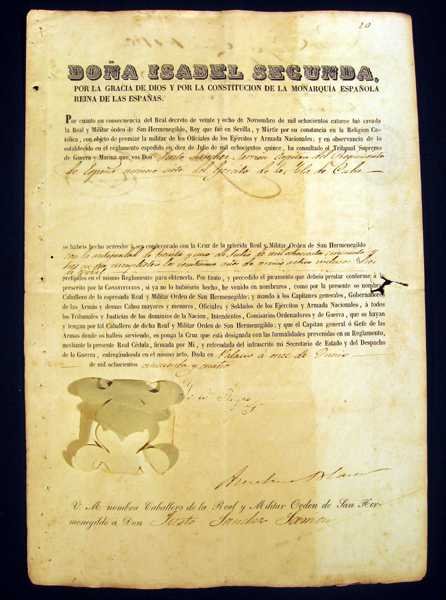 20
DOÑA ISABEL SEGUNDA,
POR LA GRACIA DE DIOS Y POR LA CONSTITUCION DE LA MONARQUIA ESPAÑOLA
REINA DE LAS ESPAÑAS.
Por cuanto en consecuencia del Real decreto de veinte y ocho de Noviembre de mil ochocientos catorce fué creada
la Real y Militar órden de San Hermenegildo, Rey que fué en Sevilla, y Mártir por su constancia en la Religion Ca-
tólica, con objeto de premiar la militar de los Oficiales de los Ejércitos y Armada Nacionales: y en observancia de lo
establecido en el reglamento espedido en diez de Julio de mil ochocientos quince, ha consultado el Tribunal Supremo
de Guerra y Marina que vos Don Justo Sanchez del Regimiento
de España numero del Ejército de la Isla de Cuba
os habeis hecho acreedor á ser condecorado con la Cruz de la referida Real y Militar Orden de San Hermenegildo
con la antigüedad de de mil ochocientos cincuenta y
prefijados en el mismo Reglamento para obtenerla. Por tanto, y precedido el juramento que debeis prestar conforme á lo
prescrito por la Constitucion, si ya no lo hubiéseis hecho, he venido en nombraros, como por la presente os nombro
Caballero de la espresada Real y Militar Orden de San Hermenegildo; y mando á los Capitanes generales, Gobernadores
de las Armas y demas Cabos mayores y menores, Oficiales y Soldados de mis Ejércitos y Armada Nacionales, á todos
los Tribunales y Justicias de los dominios de la Nacion, Intendentes, Comisarios Ordenadores y de Guerra, que os hayan
y tengan por tal Caballero de dicha Real y Militar Orden de San Hermenegildo: y que el Capitan general ó Gefe de las
Armas donde os halleis sirviendo, os ponga la Cruz que está designada con las formalidades prevenidas en su Reglamento,
mediante la presente Real Cédula, firmada por Mí, y refrendada del infrascrito mi Secretario de Estado y del Despacho
de la Guerra, entregándoseda en el mismo acto. Dada en Palacio á once de Junio
de mil ochocientos cincuenta y
V. M. nombra Caballero de la Real y Militar Orden de San Her-
menegildo á Don Justo Sanchez